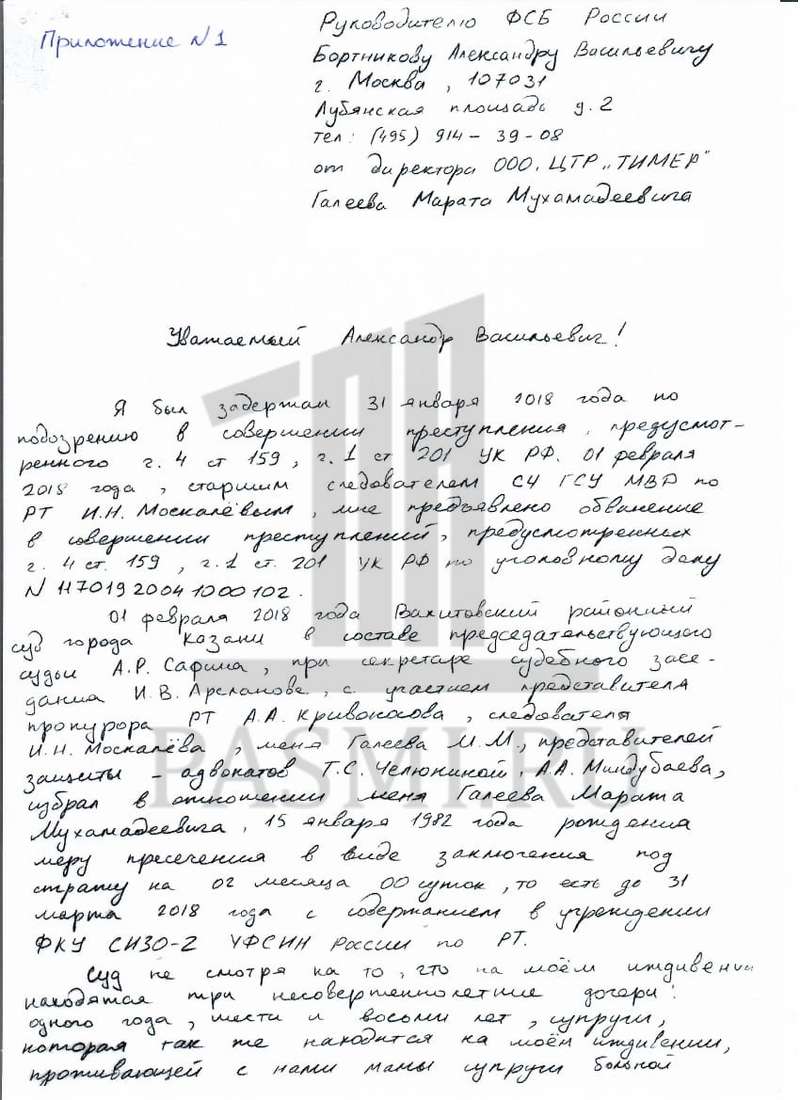 Приложение №1
Руководителю ФСБ России
Бортникову Александру Васильевичу
г. Москва, 107031
Лубянская площадь д. 2
тел: (495) 914-39-08
от директора ООО. ЦТР „ТИМЕР"
Галеева Марата Мухамадеевича
Уважаемый Александр Васильевич!
Я был задержан 31 января 2018 года по
подозрению в совершении преступления, предусмот-
ренного ч. 4 ст 159, ч. 1 ст 201 УК РФ. 01 февраля
2018 года, старшим следователем СЧ ГСУ МВД по
РТ И.Н. Москалёвым, мне предъявлено обвинение
в совершении преступлений, предусмотренных
ч. 4 ст. 159, ч. 1 ст. 201 УК РФ по уголовному делу
N 11701920041000102.
01 февраля 2018 года Вахитовский районный
суд города Казани в составе председательствующего
судьи А.Р. Сафина, при секретаре судебного засе-
дания И.В. Арсланове, с участием представителя
прокурора РТ А.А. Кривоносова, следователя
И.Н. Москалёва, меня Галеева М.М., представителей
защиты - адвокатов Т.С. Челюкиной, А.А. Миндубаева,
избрал в отношении меня Галеева Марата
Мухамадеевича, 15 января 1982 года рождения
меру пресечения в виде заключения под
стражу на 02 месяца 00 суток, то есть до 31
марта 2018 года с содержанием в учреждении
ФКУ СИЗО-2 УФСИН России по РТ.
Суд не смотря на то, что на моём иждивении
находятся три несовершеннолетние дочери:
одного года, шести и восьми лет, супруги,
которая так же находится на моём иждивении,
проживающей с нами мамы супруги больной
PASMI.RU